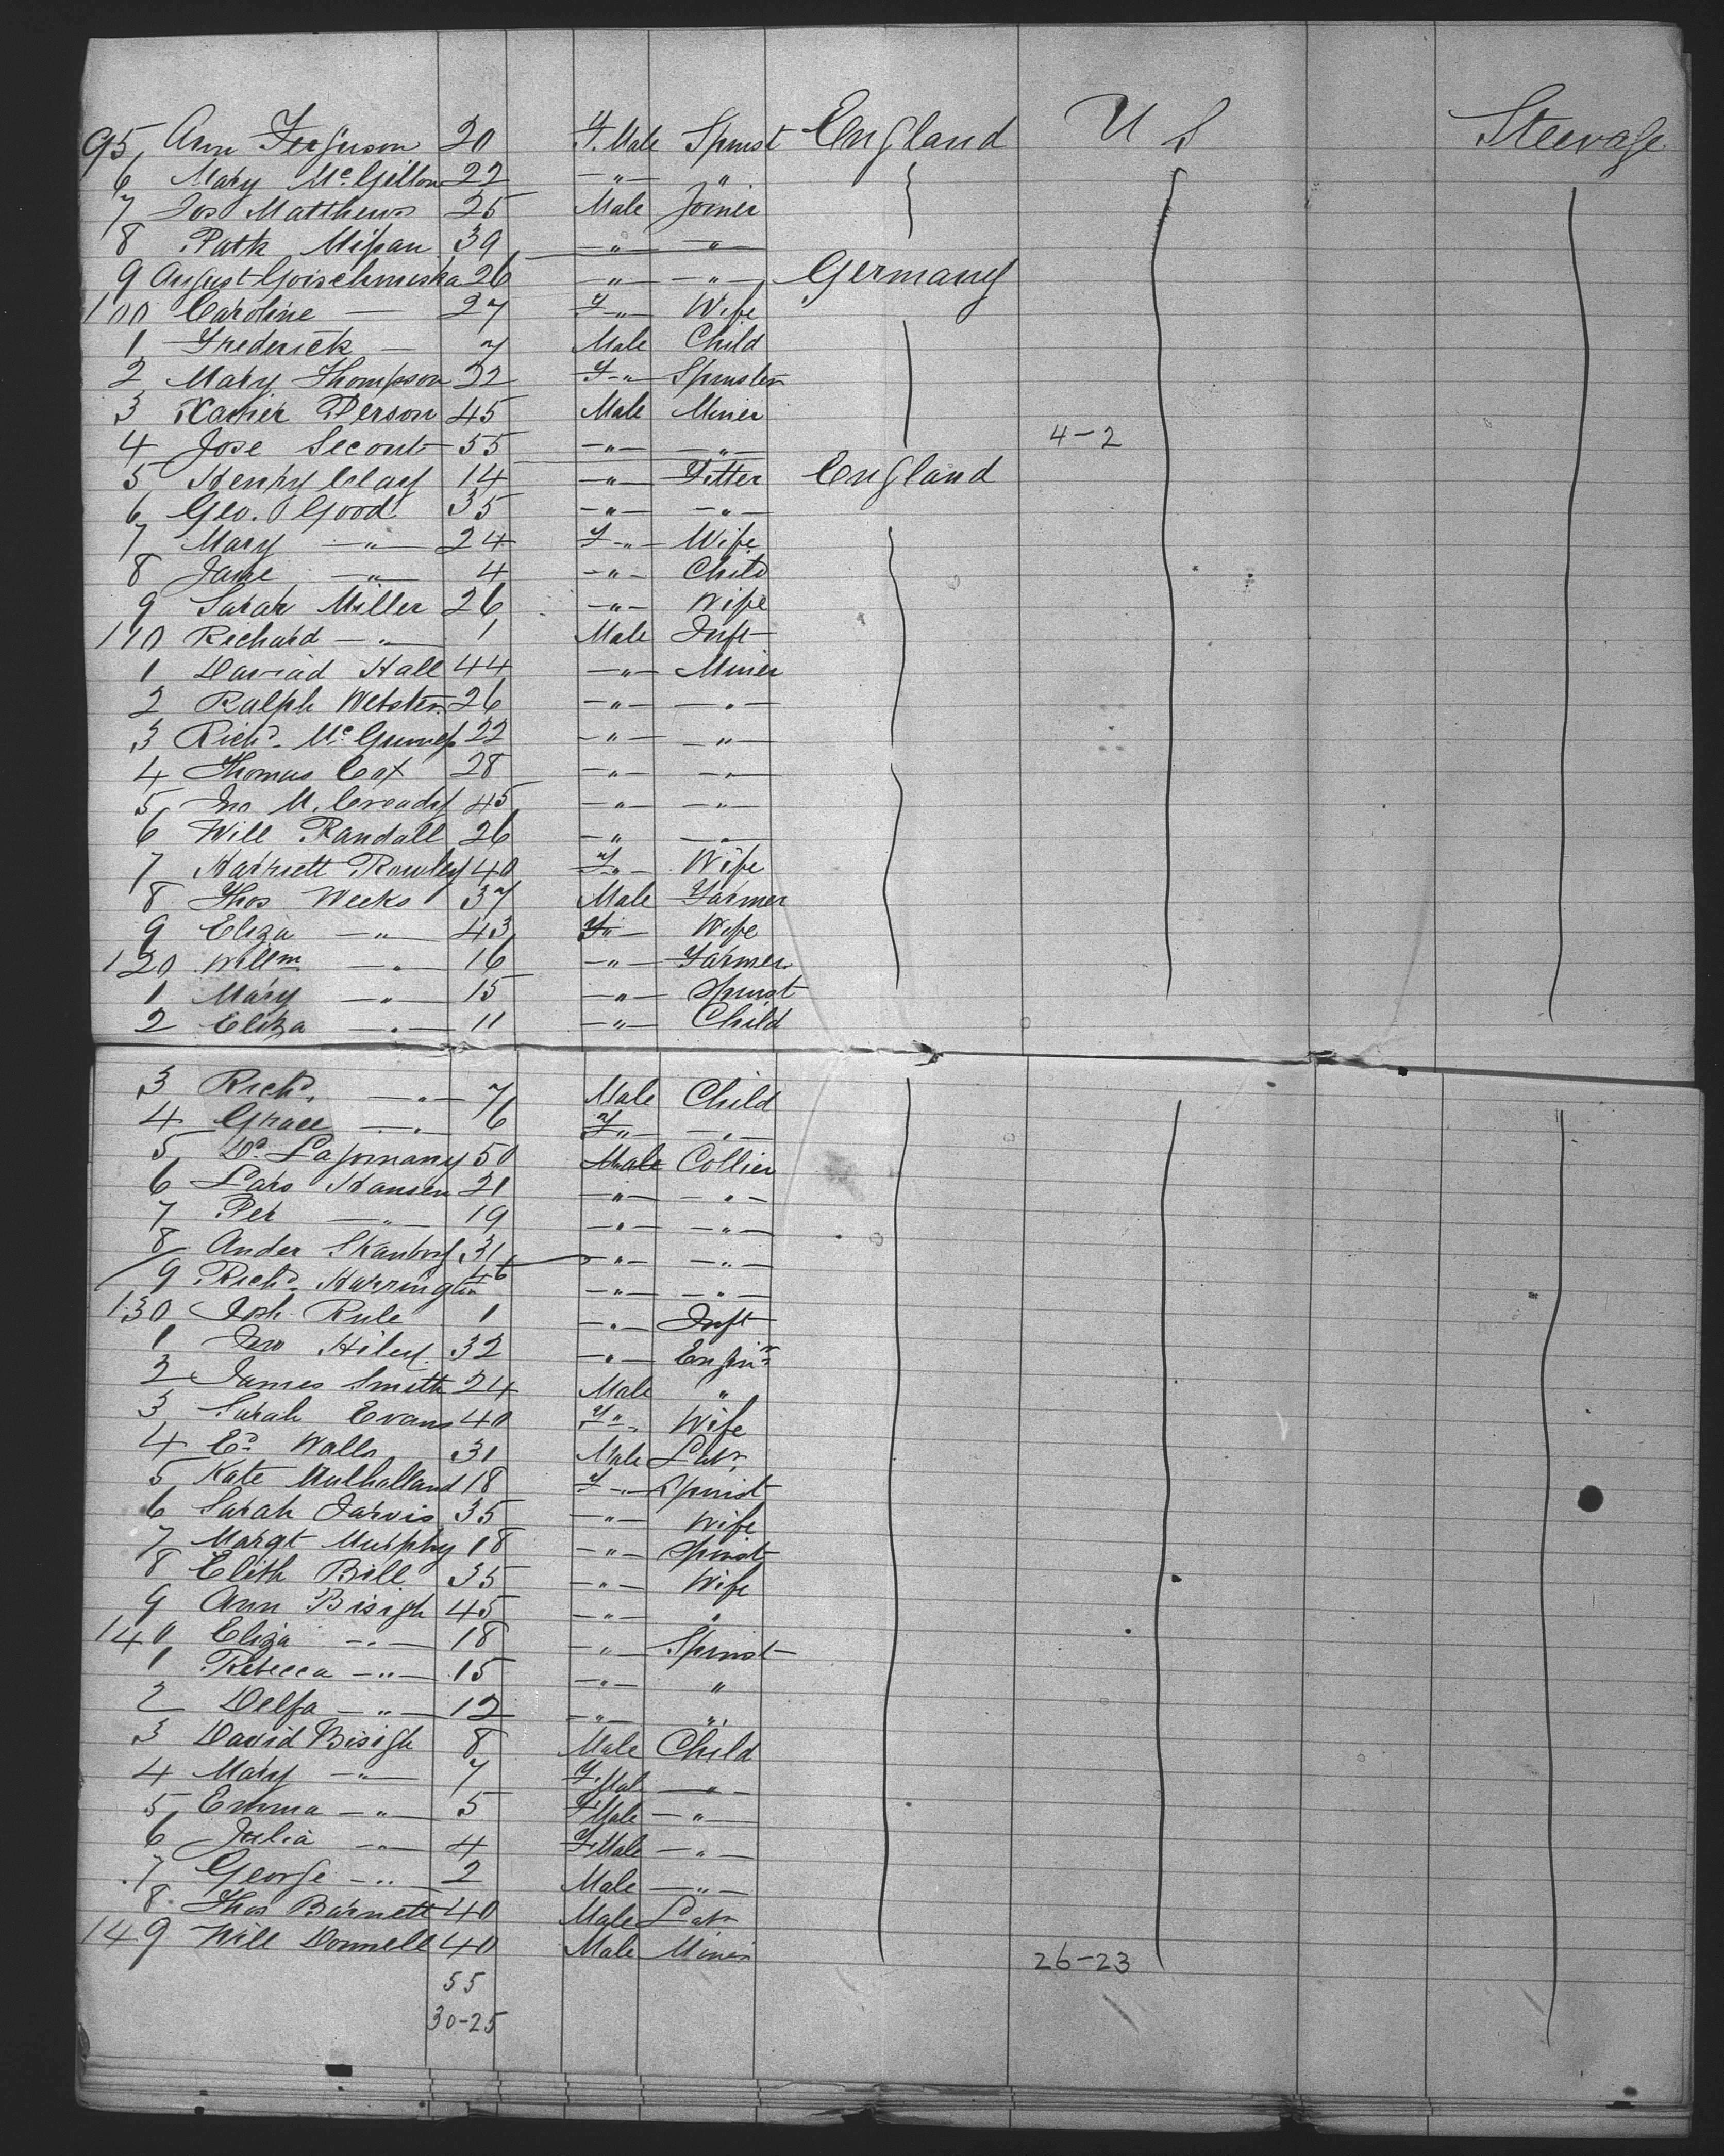 95 Ann Ferguson 20 F. Male Spinst England U S Steerage
6 Mary McGillon 22 —"— "
7 Jos Matthews 25 Male Joiner
8 Patk 39 —"— —"—
9 August 26 —"— —"— Germany
100 Caroline — 27 F—"— Wife
1 Frederick — 7 Male Child
2 Mary Thompson 22 F—"— Spinster
3 Xavier Person 45 Male Miner
4 Jose Secont 55 —"— —"— 4-2
5 Henry Clay 14 —"— Fitter England
6 Geo. Good 35 —"— —"—
7 Mary —"— 24 F—"— Wife
8 Jane —"— 4 —"— Child
9 Sarah Miller 26 —"— Wife
110 Richard —"— 1 Male Inft
1 David Hall 44 —"— Miner
2 Ralph Webster 26 —"— —"—
3 Richd. 22 —"— —"—
4 Thomas Cox 28 —"— —"—
5 Jno M. Cready 45 —"— —"—
6 Will Randall 26 —"— —"—
7 Harriett Rowley 40 F—"— Wife
8 Thos Weeks 37 Male Farmer
9 Eliza —"— 43 F"— Wife
120 Willm —"— 16 —"— Farmer
1 Mary —"— 15 —"— Spinst
2 Eliza —"— 11 —"— Child
3 Richd. —"— 7 Male Child
4 Grace —"— 6 F"— —"—
5 50 Male Collier
6 Lars Hansen 21 —"— —"—
7 Per —"— 19 —"— —"—
8 Ander 31 —"— —"—
9 Richd. Harrington 46 —"— —"—
130 Josh Rule 1 —"— Inft
1 Jno Hiley 32 —"— Enginr
2 James Smith 24 Male "
3 Sarah Evans 40 F"— Wife
4 Ed Walls 31 Male Labr
5 Kate Mulhalland 18 F—"— Spinst
6 Sarah Jarvis 35 —"— Wife
7 Margt Murphy 18 —"— Spinst
8 Elith Bill 35 —"— Wife
9 Ann Bisigh 45 —"— "
140 Eliza —"— 18 —"— Spinst
1 Rebecca —"— 15 —"— "
2 Delfa —"— 12 —"— "
3 David Bisigh 8 Male Child
4 Mary —"— 7 F.Male —"—
5 Emma —"— 5 F.Male —"—
6 Julia —"— 4 F.Male —"—
7 George —"— 2 Male —"—
8 Thos Barnett 40 Male Labr
149 Will Donnell 40 Male Miner 26-23
55
30-25